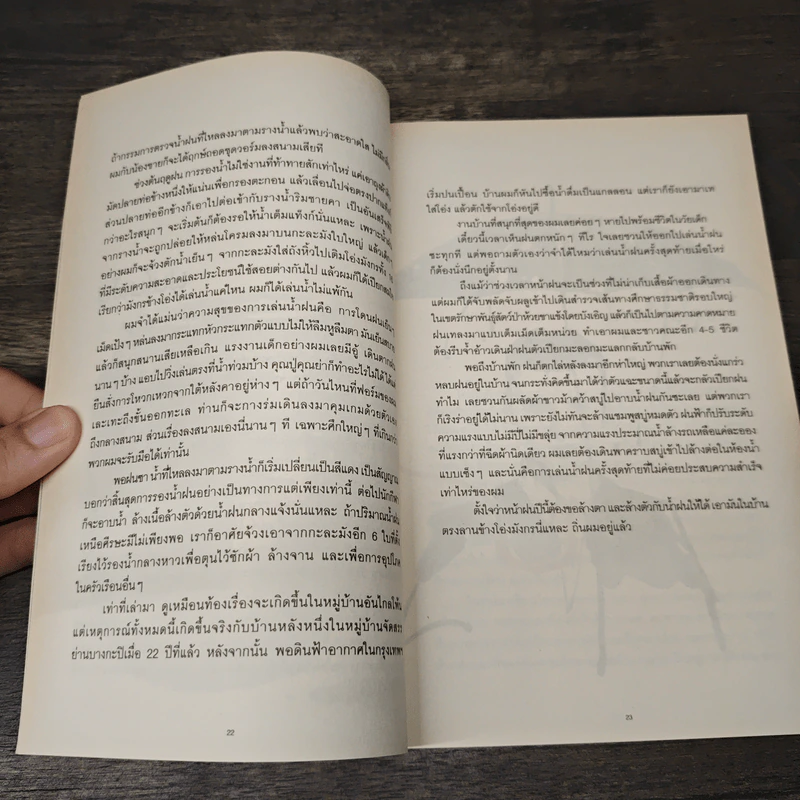 ถ้ากรรมการตรวจน้ำฝนที่ไหลลงมาตามรางน้ำแล้วพบว่าสะอาดใส
ผมกับน้องชายก็จะได้ฤกษ์ถอดชุดวอร์มลงสนามเสียที
ช่วงต้นฤดูฝน การรองน้ำไม่ใช่งานที่ท้าทายสักเท่าไหร่
มัดปลายท่อข้างหนึ่งให้แน่นเพื่อกรองตะกอน แล้วเลื่อนไปจ่อตรง
ส่วนปลายท่ออีกข้างก็เอาไปต่อเข้ากับรางน้ำริมชายคา เป็นอัน
กว่าอะไรสนุกๆ จะเริ่มต้นก็ต้องรอให้น้ำเต็มแท็งก์นั่นแหละ เพราะ
จากรางน้ำจะถูกปล่อยให้หล่นโครมลงมาบนกะละมังใบใหญ่ แล้ว
อย่างผมก็จะจ้วงตักน้ำเย็นๆ จากกะละมังใส่ถังหิ้วไปเติมโอ่งมังกรทั้ง
ที่มีระดับความสะอาดและประโยชน์ใช้สอยต่างกันไป แล้วผมก็ได้เปียก
เรียกว่ามังกรข้างโอ่งได้เล่นน้ำแค่ไหน ผมก็ได้เล่นน้ำไม่แพ้กัน
ผมจำได้แม่นว่าความสุขของการเล่นน้ำฝนคือ การโดนฝน
เม็ดเป้งๆ หล่นลงมากระแทกหัวกระแทกตัวแบบไม่ให้ลืมหูลืมตา มันเย็น
แล้วก็สนุกสนานเสียเหลือเกิน แรงงานเด็กอย่างผมเลยมีอู้ เดินตาก
นานๆ บ้าง แอบไปวิ่งเล่นตรงที่น้ำท่วมบ้าง คุณปู่คุณย่าก็ทำอะไรไม่ได้ ได้แต่
ยืนสั่งการโหวกเหวกจากใต้หลังคาอยู่ห่างๆ แต่ถ้าวันไหนที่ฟอร์มของผม
เละเทะถึงขั้นออกทะเล ท่านก็จะกางร่มเดินลงมาคุมเกมด้วยตัวเอง
ถึงกลางสนาม ส่วนเรื่องลงสนามเองนี่นานๆ ที เฉพาะศึกใหญ่ๆ ที่เกินกว่า
พวกผมจะรับมือได้เท่านั้น
พอฝนซา น้ำที่ไหลลงมาตามรางน้ำก็เริ่มเปลี่ยนเป็นสีแดง เป็นสัญญาณ
บอกว่าสิ้นสุดการรองน้ำฝนอย่างเป็นทางการแต่เพียงเท่านี้ ต่อไปนักกีฬา
ก็จะอาบน้ำ ล้างเนื้อล้างตัวด้วยน้ำฝนกลางแจ้งนั่นแหละ ถ้าปริมาณน้ำฝน
เหนือศีรษะมีไม่เพียงพอ เราก็อาศัยจ้วงเอาจากกะละมังอีก 6 ใบที่ตั้ง
เรียงไว้รองน้ำกลางหาวเพื่อตุนไว้ซักผ้า ล้างจาน และเพื่อการอุปโภค
ในครัวเรือนอื่นๆ
เท่าที่เล่ามา ดูเหมือนท้องเรื่องจะเกิดขึ้นในหมู่บ้านอันไกลโพ้น
แต่เหตุการณ์ทั้งหมดนี้เกิดขึ้นจริงกับบ้านหลังหนึ่งในหมู่บ้านจัดสรร
ย่านบางกะปิเมื่อ 22 ปีที่แล้ว หลังจากนั้น พอดินฟ้าอากาศในกรุงเทพฯ
22
เริ่มปนเปื้อน บ้านผมก็หันไปซื้อน้ำดื่มเป็นแกลลอน แต่เราก็ยังเอามาเท
ใส่โอ่ง แล้วตักใช้จากโอ่งอยู่ดี
งานบ้านที่สนุกที่สุดของผมเลยค่อยๆ หายไปพร้อมชีวิตในวัยเด็ก
เดี๋ยวนี้เวลาเห็นฝนตกหนักๆ ทีไร ใจเลยชวนให้ออกไปเล่นน้ำฝน
ซะทุกที แต่พอถามตัวเองว่าจำได้ไหมว่าเล่นน้ำฝนครั้งสุดท้ายเมื่อไหร่
ก็ต้องนั่งนึกอยู่ตั้งนาน
ถึงแม้ว่าช่วงเวลาหน้าฝนจะเป็นช่วงที่ไม่น่าเก็บเสื้อผ้าออกเดินทาง
แต่ผมก็ได้จับพลัดจับผลูเข้าไปเดินสำรวจเส้นทางศึกษาธรรมชาติรอบใหญ่
ในเขตรักษาพันธุ์สัตว์ป่าห้วยขาแข้งโดยบังเอิญ แล้วก็เป็นไปตามความคาดหมาย
ฝนเทลงมาแบบเต็มเม็ดเต็มหน่วย ทำเอาผมและชาวคณะอีก 4-5 ชีวิต
ต้องรีบจ้ำอ้าวเดินฝ่าฝนตัวเปียกมะลอกมะแลกกลับบ้านพัก
พอถึงบ้านพัก ฝนก็ตกไล่หลังลงมาอีกห่าใหญ่ พวกเราเลยต้องนั่งแกร่ว
หลบฝนอยู่ในบ้าน จนกระทั่งคิดขึ้นมาได้ว่าตัวแฉะขนาดนี้แล้วจะกลัวเปียกฝน
ทำไม เลยชวนกันผลัดผ้าขาวม้าคว้าสบู่ไปอาบน้ำฝนกันซะเลย แต่พวกเรา
ก็เริงร่าอยู่ได้ไม่นาน เพราะยังไม่ทันจะล้างแชมพูสบู่หมดตัว ฝนฟ้าก็ปรับระดับ
ความแรงแบบไม่มีปี่ไม่มีขลุ่ย จากความแรงประมาณน้ำล้างรถเหลือแค่ละออง
ที่แรงกว่าที่ฉีดผ้านิดเดียว ผมเลยต้องเดินพาคราบสบู่เข้าไปล้างต่อในห้องน้ำ
แบบเซ็งๆ และนั่นคือการเล่นน้ำฝนครั้งสุดท้ายที่ไม่ค่อยประสบความสำเร็จ
เท่าไหร่ของผม
ตั้งใจว่าหน้าฝนปีนี้ต้องขอล้างตา และล้างตัวกับน้ำฝนให้ได้ เอามันในบ้าน
ตรงลานข้างโอ่งมังกรนี่แหละ ถิ่นผมอยู่แล้ว
23